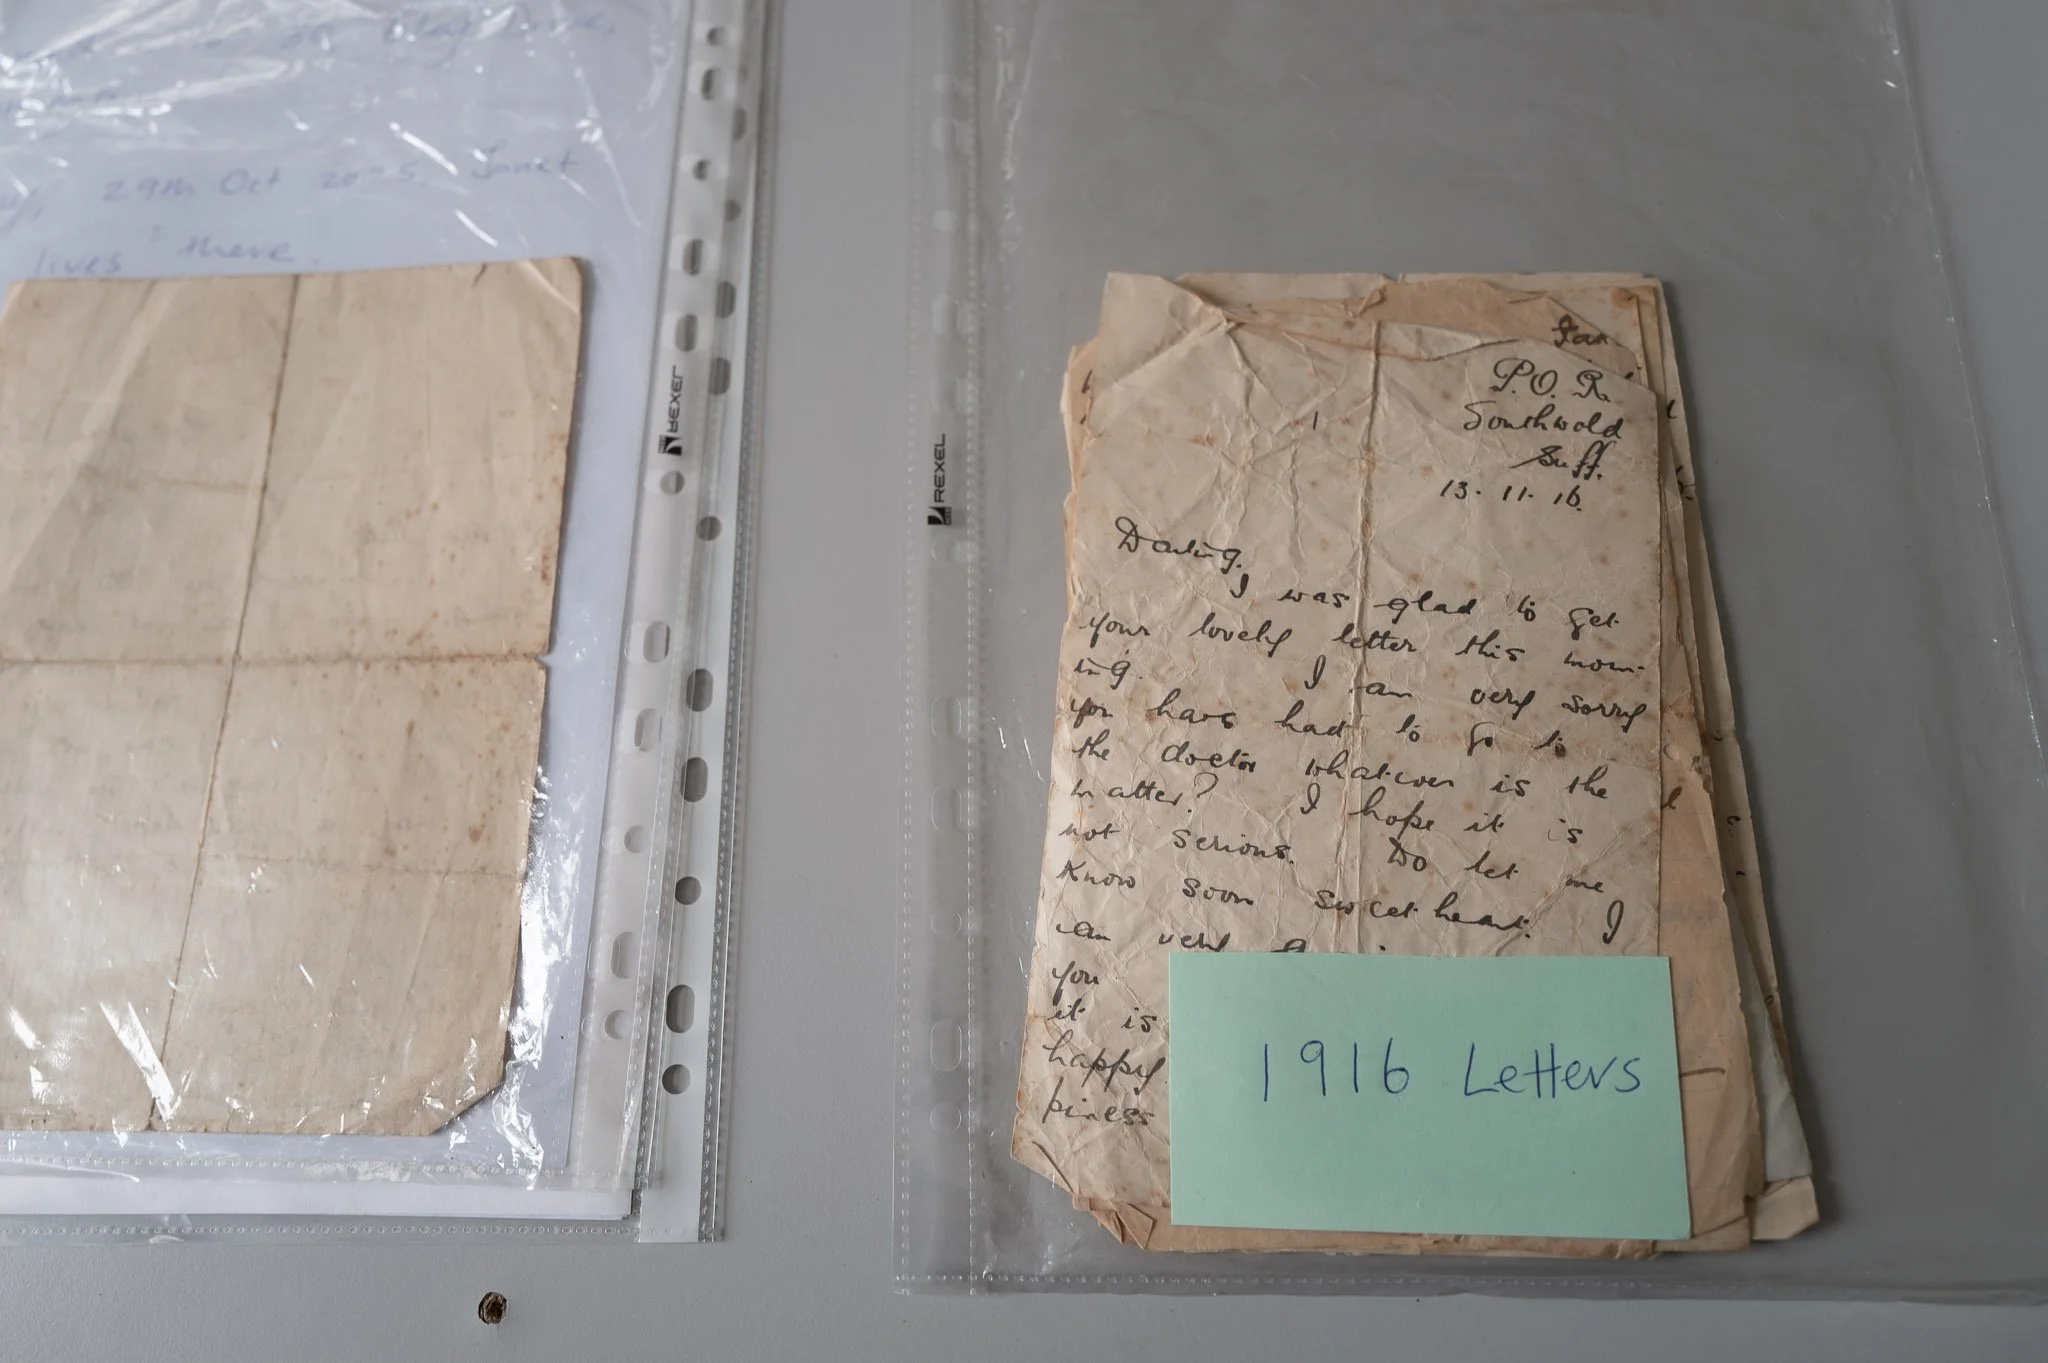 29th Oct 2025. Janet
lives there.
REXEL
REXEL
P.O. R.
Southwold
Suff.
13. 11. 16.
1
Darling.
I was glad to get
your lovely letter this morn-
ing. I am very sorry
you have had to go to
the doctor whatever is the
matter? I hope it is
not serious. Do let me
know soon sweetheart. I
am very
you
it is
happy
piness
1916 Letters